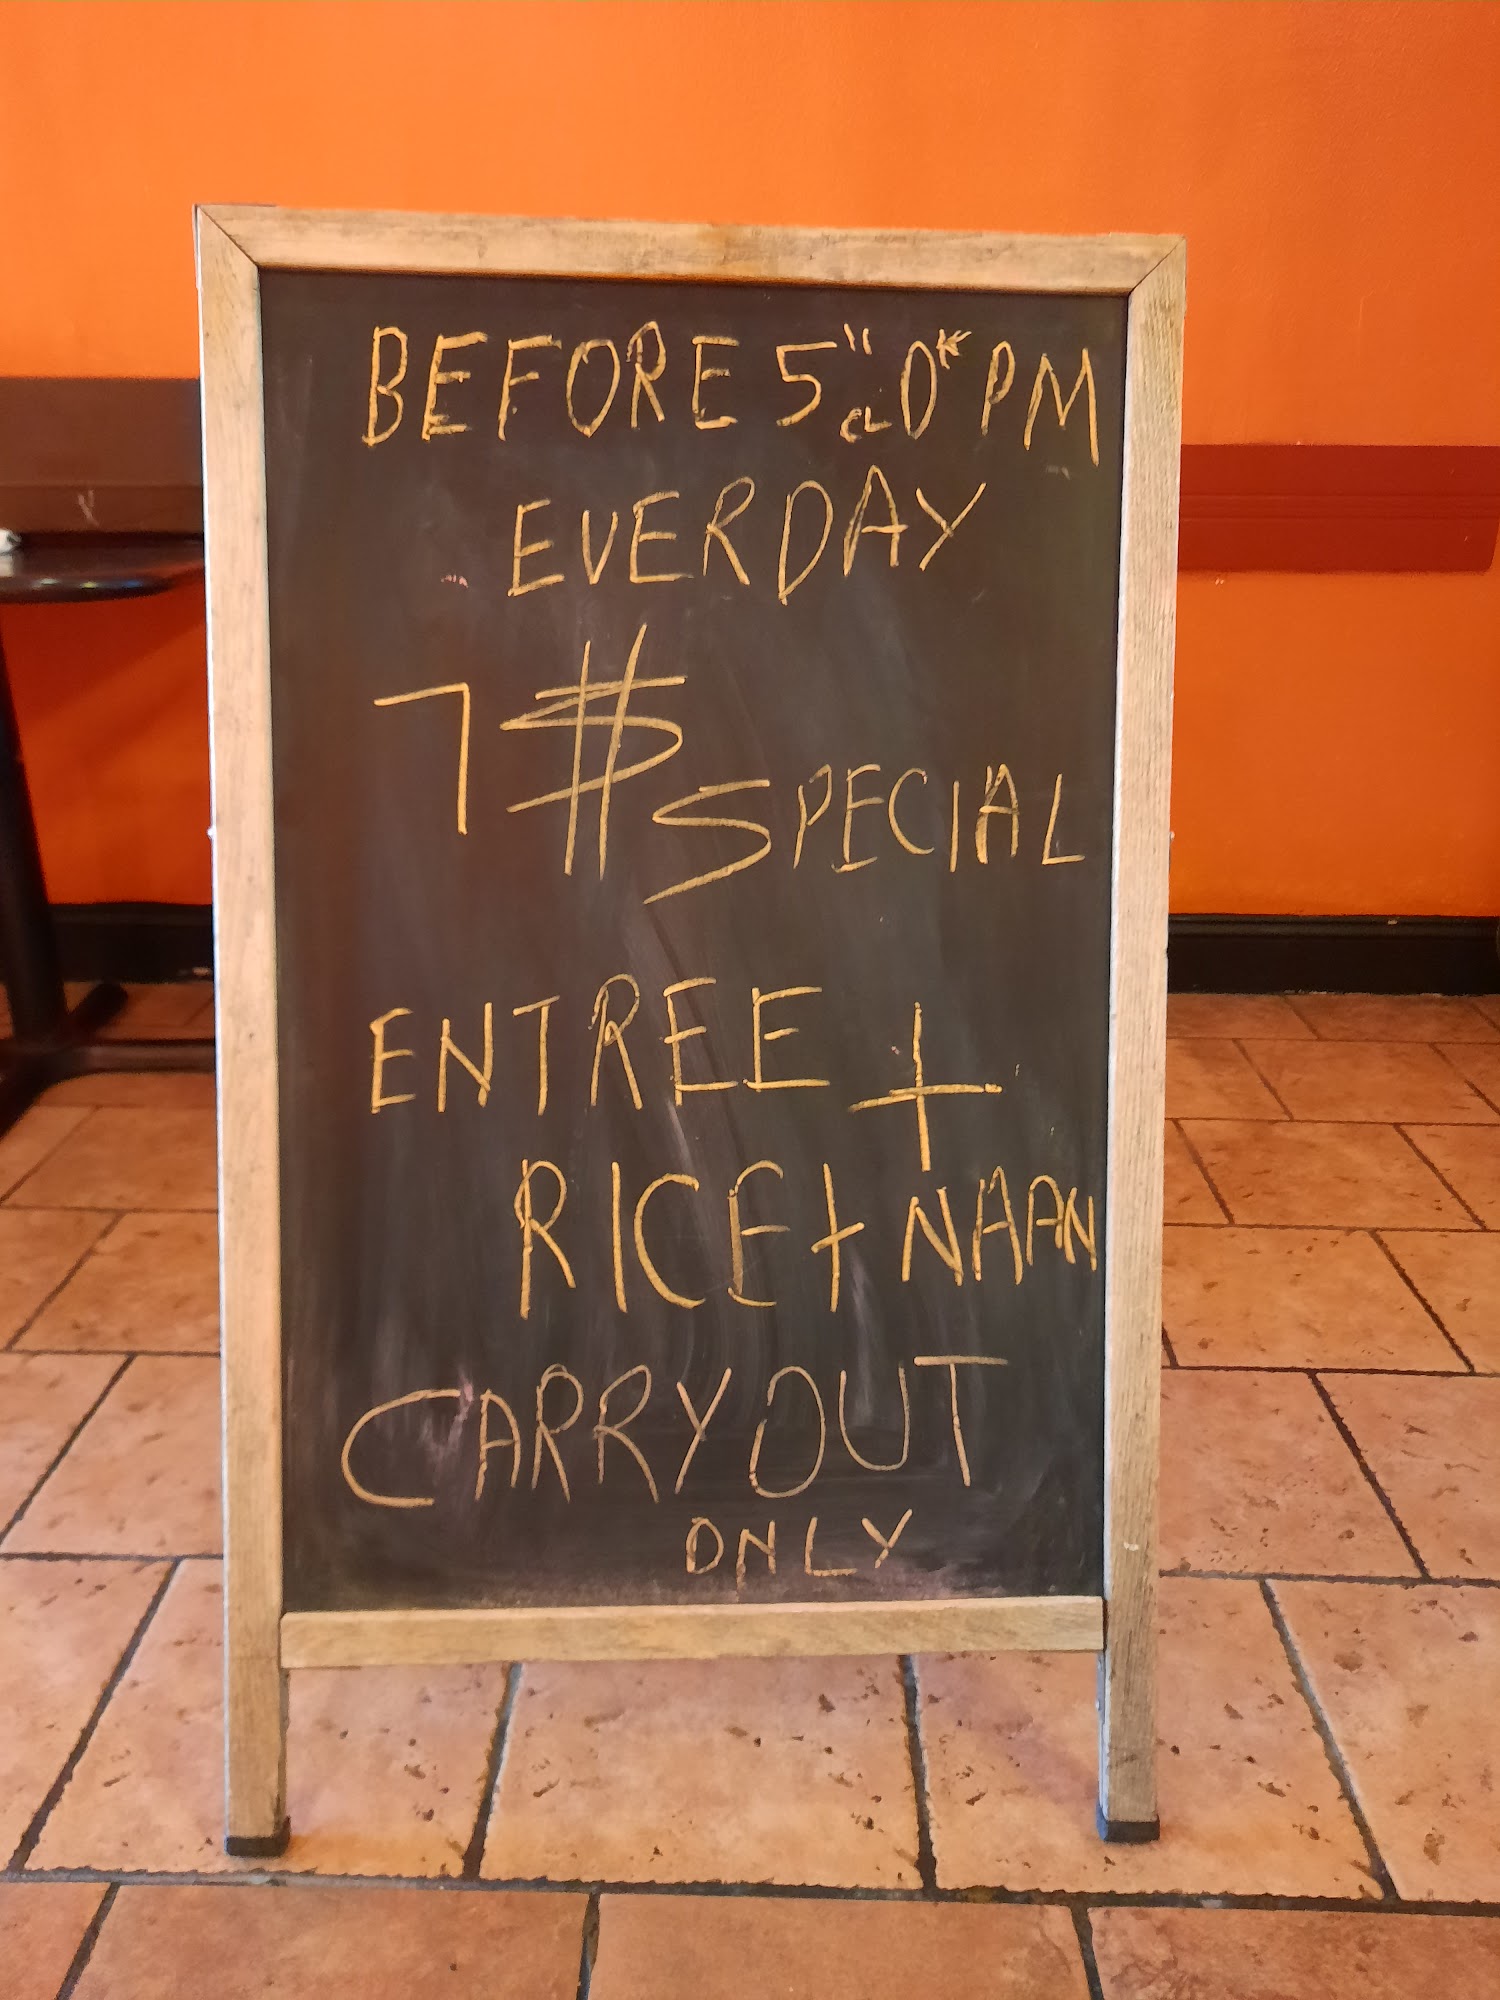 BEFORE 5:00 PM
EVERDAY
7$ SPECIAL
ENTREE +
RICE + NAAN
CARRYOUT
ONLY